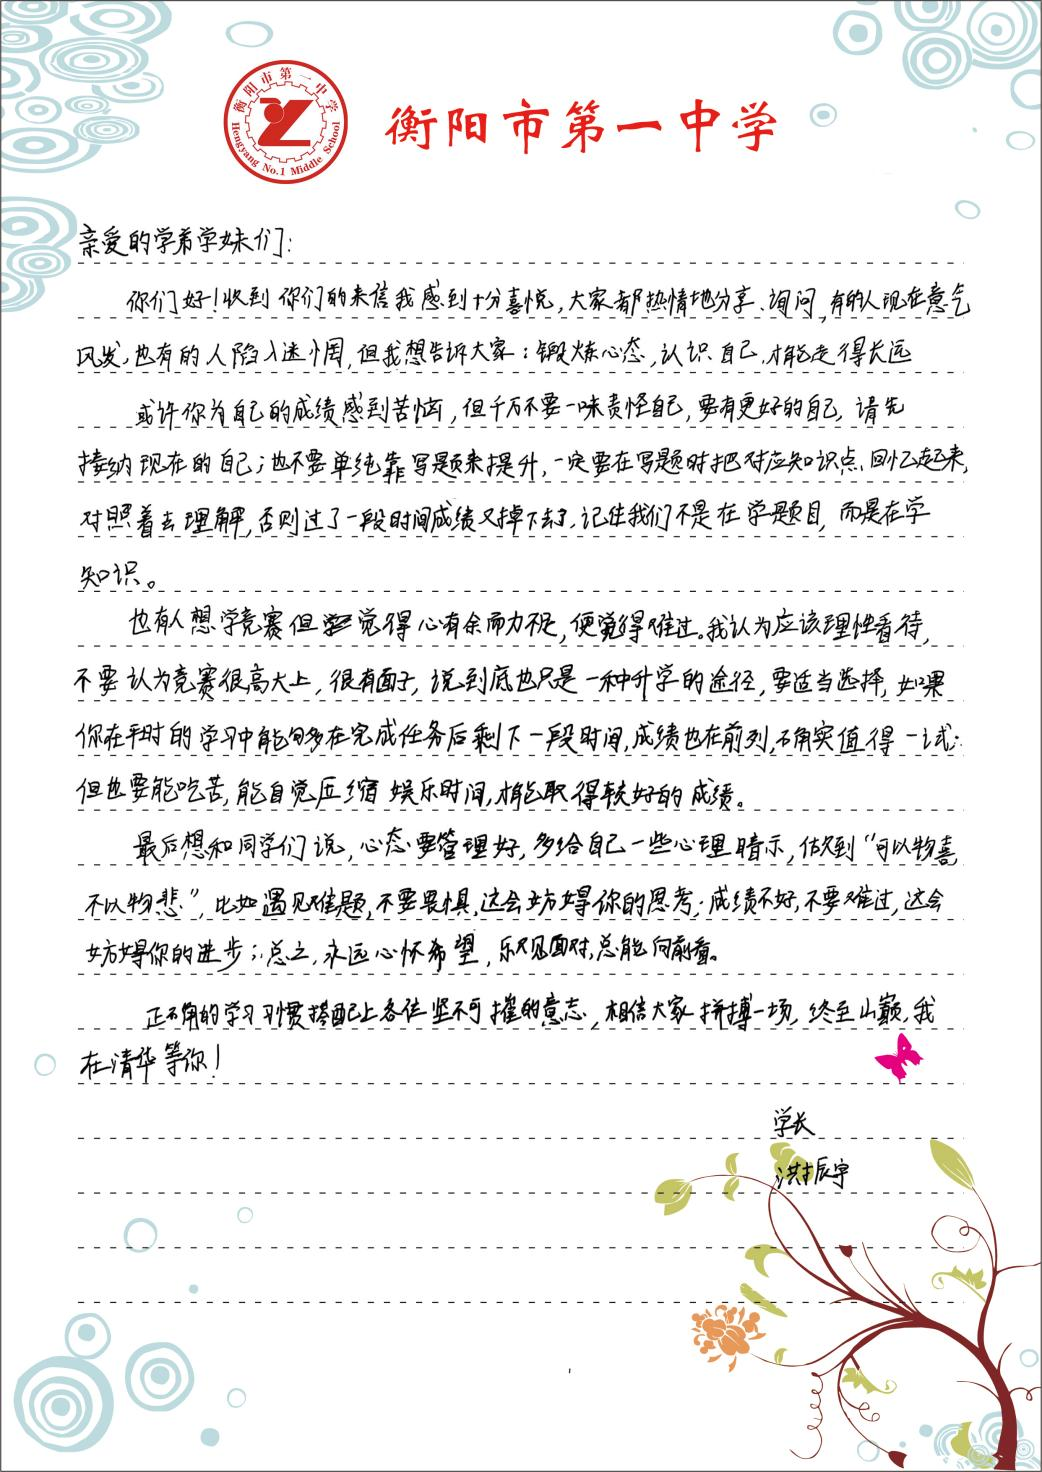 衡阳市第一中学
Hengyang No.1 Middle School
衡阳市第一中学
亲爱的学弟学妹们:
你们好!收到你们的来信我感到十分喜悦,大家都热情地分享、询问,有的人现在意气
风发,也有的人陷入迷惘,但我想告诉大家:锻炼心态,认识自己,才能走得长远
或许你为自己的成绩感到苦恼,但千万不要一味责怪自己,要有更好的自己,请先
接纳现在的自己;也不要单纯靠写题来提升,一定要在写题时把对应知识点回忆起来,
对照着去理解,否则过了一段时间成绩又掉下去了,记住我们不是在学题目,而是在学
知识。
也有人想学竞赛但觉得心有余而力不足,便觉得难过。我认为应该理性看待,
不要认为竞赛很高大上,很有面子,说到底也只是一种升学的途径,要适当选择,如果
你在平时的学习中能够多在完成任务后剩下一段时间,成绩也在前列,确实值得一试;
但也要能吃苦,能自觉压缩娱乐时间,才能取得较好的成绩。
最后想和同学们说,心态要管理好,多给自己一些心理暗示,做到“可以物喜,
不以物悲”,比如遇见难题,不要畏惧,这会妨碍你的思考;成绩不好,不要难过,这会
妨碍你的进步;总之,永远心怀希望,乐观面对,总能向前看。
正确的学习习惯搭配上各位坚不可摧的意志,相信大家拼搏一场,终至山巅,我
在清华等你!
学长
洪振宇